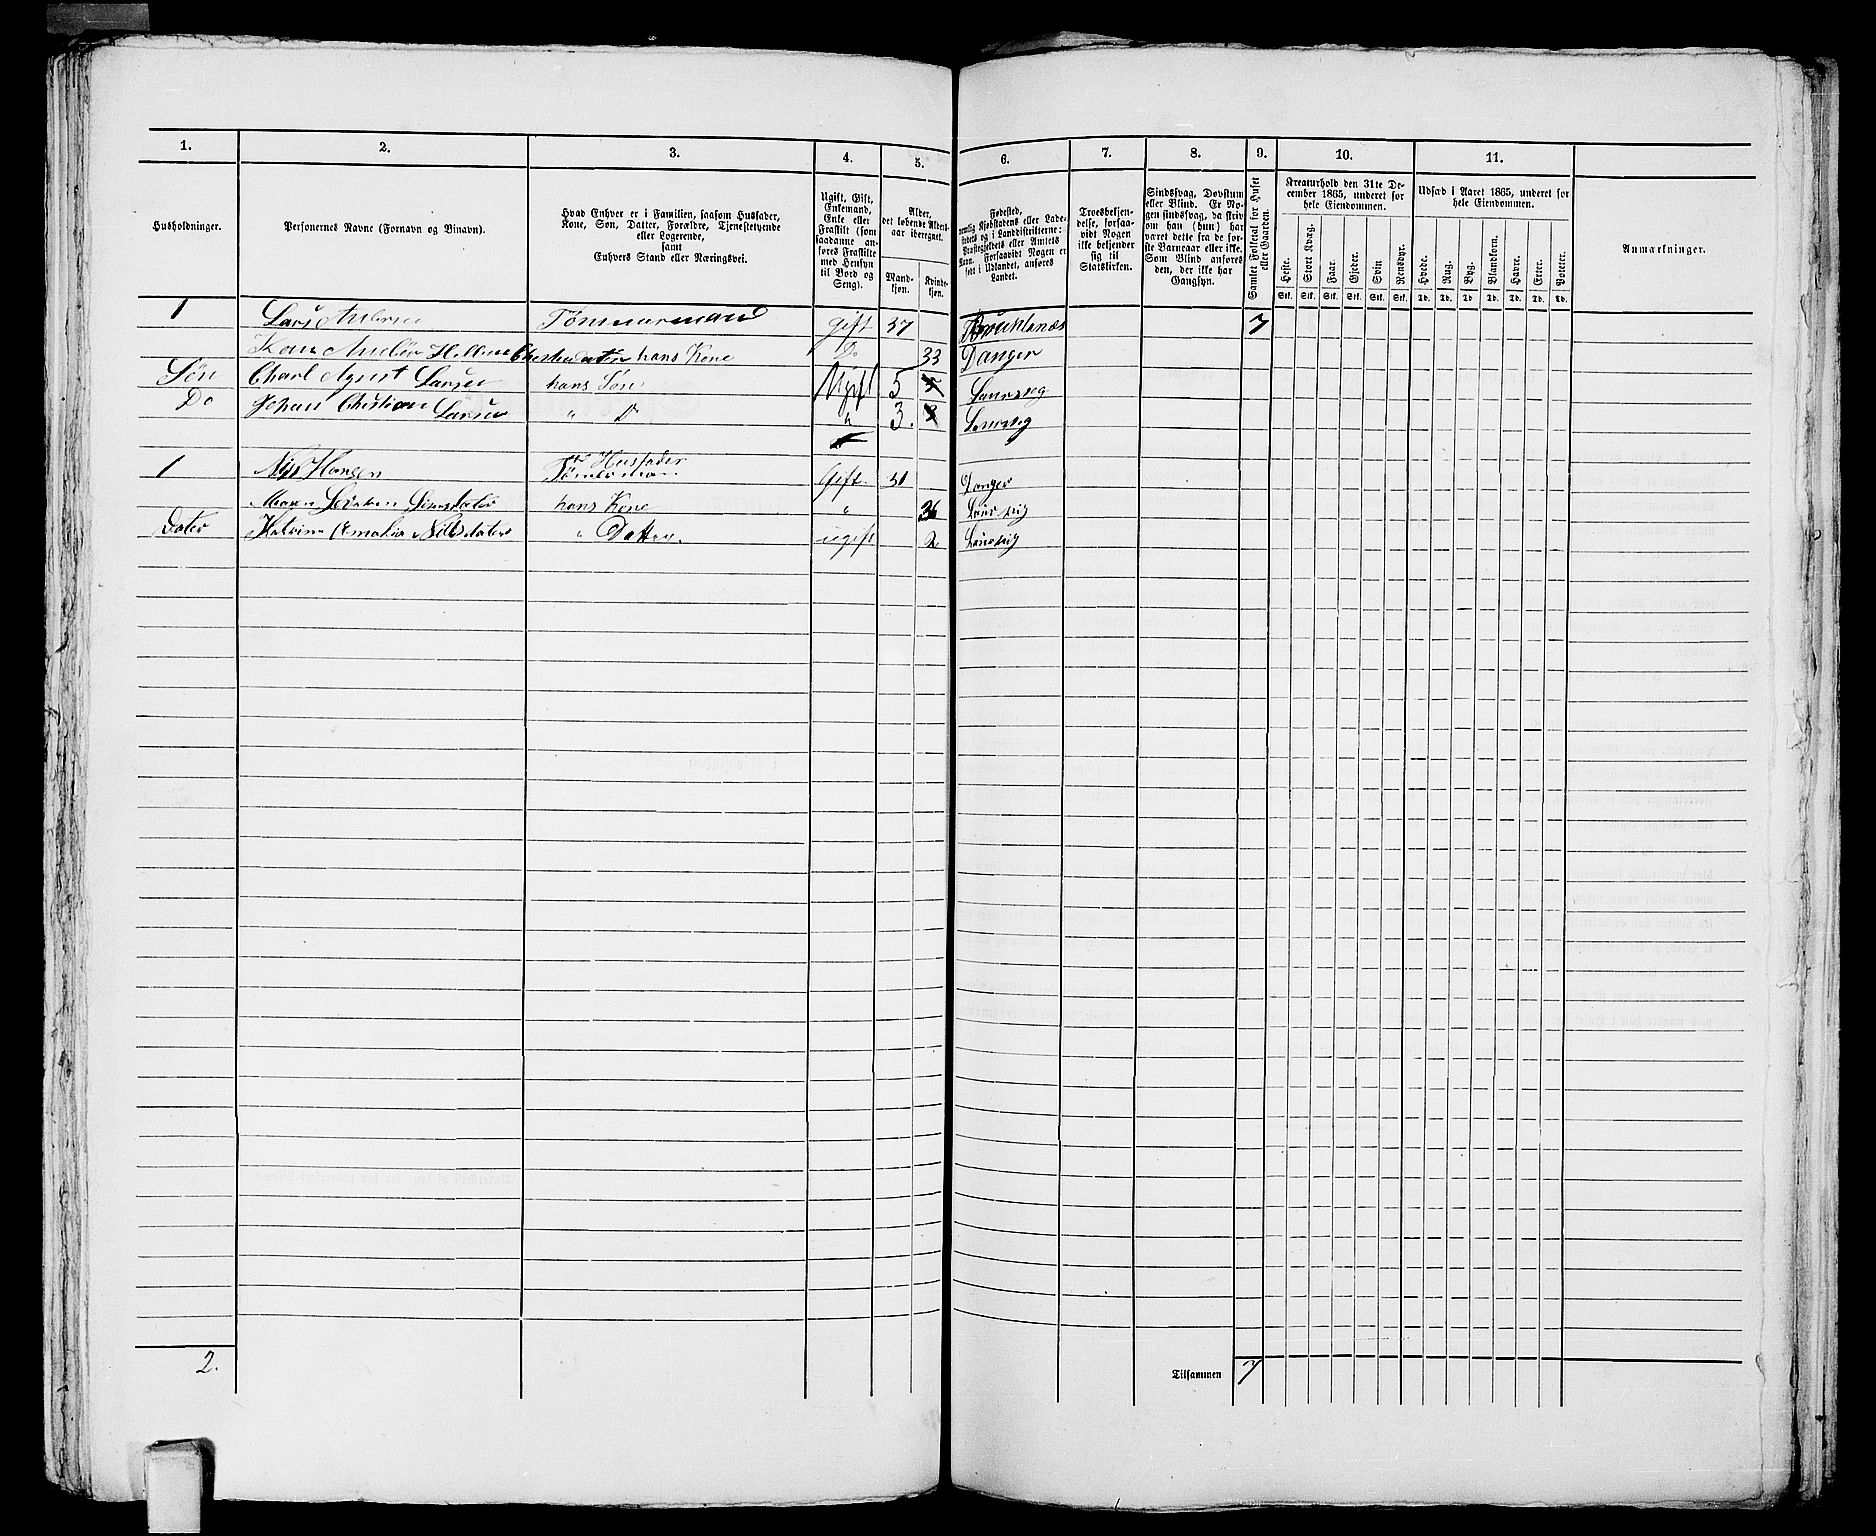 1. 2. 3. 4. 5. 6. 7. 8. 9. 10. 11.
Husholdninger.
Personernes Navne (Fornavn og Binavn).
Hvad Enhver er i Familien, saasom Husfader,
Kone, Søn, Datter, Forældre, Tjenestetyende
eller Logerende,
samt
Enhvers Stand eller Næringsvei.
Ugift, Gift,
Enkemand,
Enke eller
Fraskilt (som
saadanne an-
føres Fraskilte
med Hensyn
til Bord og
Seng).
Alder,
det løbende Alders-
aar iberegnet.
Mand-
kjøn.
Kvinde-
kjøn.
Fødested,
nemlig Kjøbstadens eller Lade-
stedets og i Landdistrikterne:
Præstegjeldets eller Amtets
Navn. Forsaavidt Nogen er
født i Udlandet, anføres
Landet.
Troesbekjen-
delse, forsaa-
vidt Nogen
ikke bekjender
sig til
Statskirken.
Sindssvag, Døvstum
eller Blind. Er No-
gen sindssvag, da skriv
om han (hun) har
været dette fra de før-
ste Barneaar eller ikke.
Som Blind anføres
den, der ikke har
Gangsyn.
Samlet Folketal for Huset
eller Gaarden.
Kreaturhold den 31te De-
cember 1865, underet for
hele Eiendommen.
Heste. Stort Kvæg. Faar. Gjeder. Svin Rensdyr.
Stk. Stk. Stk. Stk. Stk. Stk.
Udsæd i Aaret 1865, underet for
hele Eiendommen.
Hvede. Rug. Byg. Blandkorn. Havre. Erter. Poteter.
Td. Td. Td. Td. Td. Td. Td.
Anmærkninger.
1 Lars Tømmermand gift 37 7
hans Kone Do 33 Tanger
Søn Charl Agust Larsen hans Søn Ugift 5 5 Laurvig
Do Johan Christian Larsen " D " 3. 3 Laurvig
Husfader
1 Nils Hansen Tømmerman Gift 31 Tanger
Maren hans Kone " 36 Laurvig
Dater Katrine Emalia Nilsdater " Datter ugift 2 Laurvig
2.
Tilsammen 7